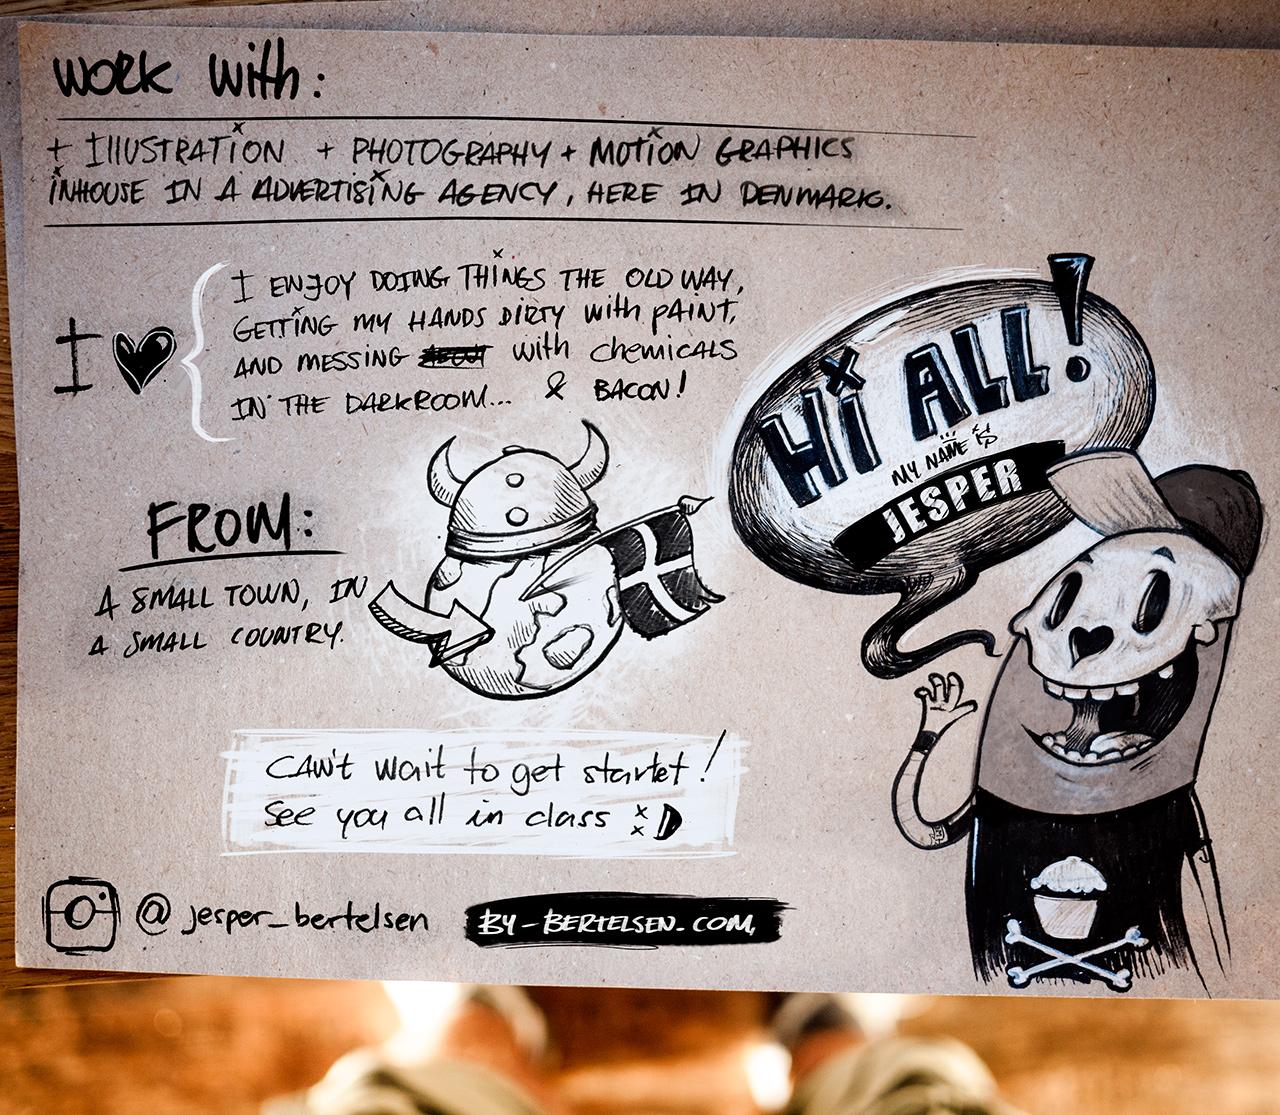 Work with:
+ ILLUSTRATION + PHOTOGRAPHY + MOTION GRAPHICS
INHOUSE IN A ADVERTISING AGENCY, HERE IN DENMARK.
I ♥
I ENJOY DOING THINGS THE OLD WAY,
GETTING MY HANDS DIRTY with PAINT,
AND MESSING with chemicals
IN THE DARKROOM... & BACON!
Hi ALL!
MY NAME IS
JESPER
FROM:
A SMALL TOWN, IN
A SMALL COUNTRY.
CAN't wait to get startet!
See you all in class :D
@ jesper_bertelsen
BY-BERTELSEN.COM